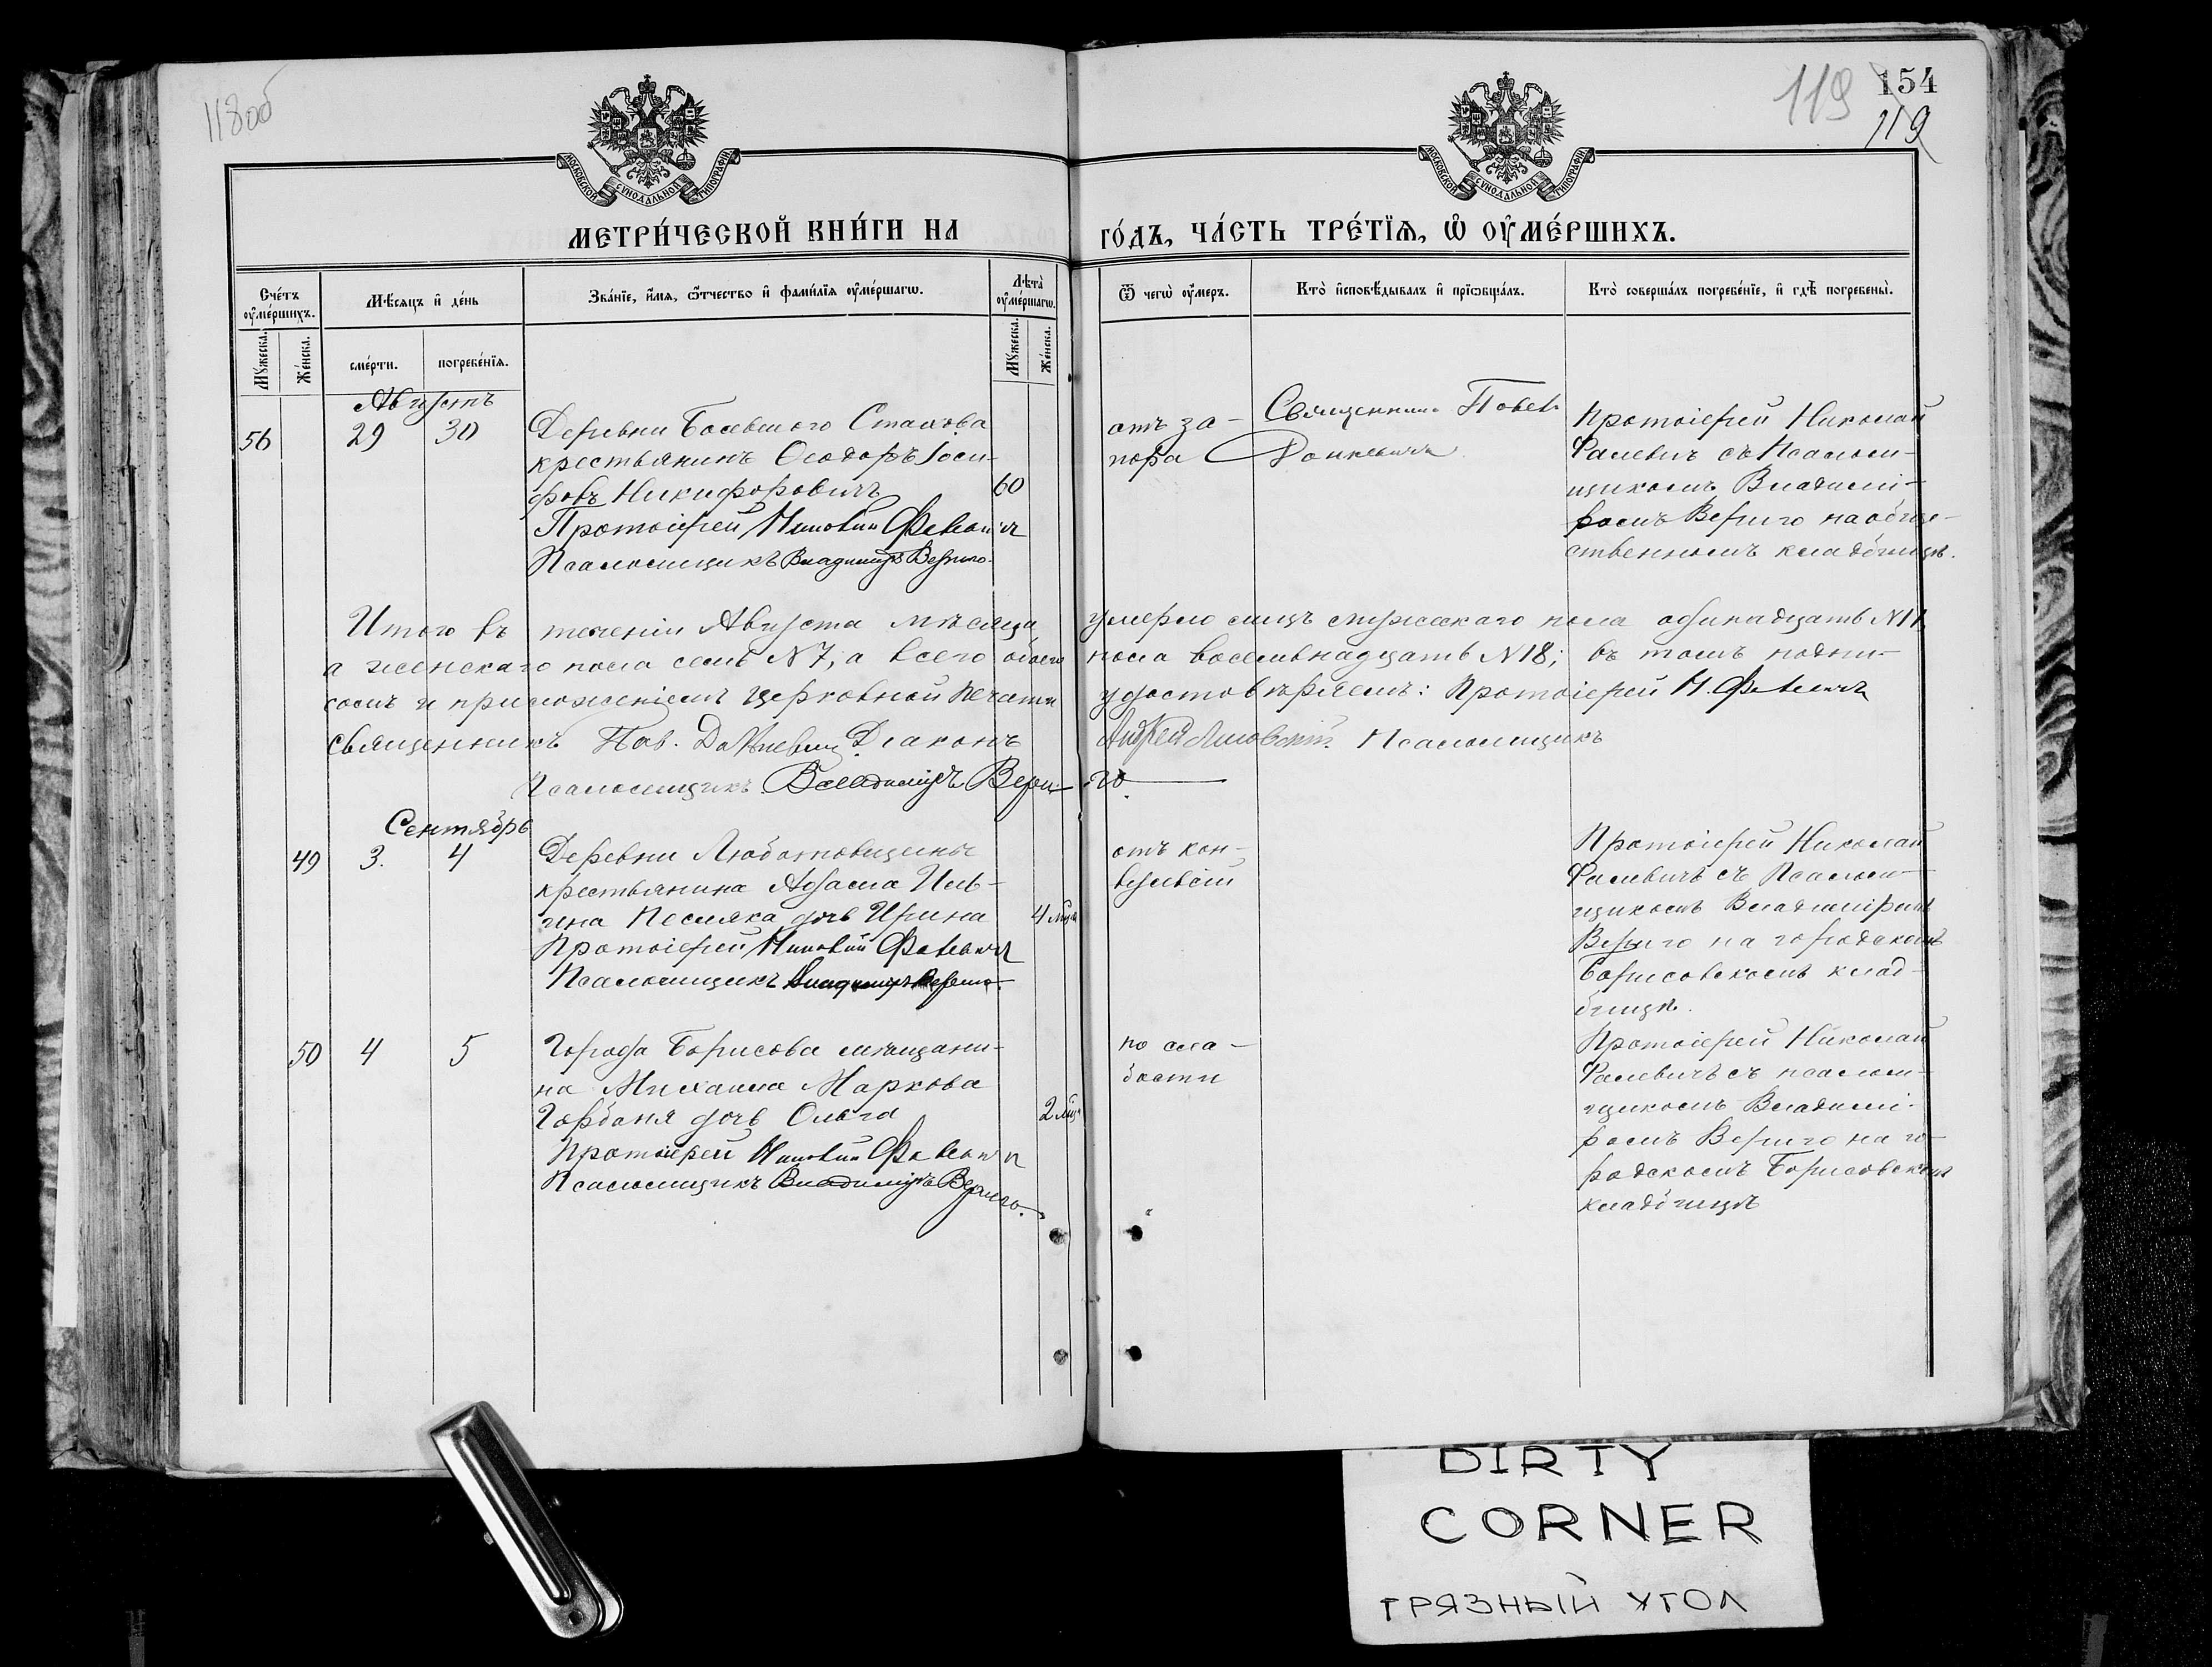 118об
119
154
119
МОСКОВСКОЙ СУНОДАЛЬНОЙ ТИПОГРАФІИ
МОСКОВСКОЙ СУНОДАЛЬНОЙ ТИПОГРАФІИ
МЕТРИ́ЧЕСКОЙ КНИ́ГИ НА
ГО́ДЪ, ЧА́СТЬ ТРЕ́ТЇЯ, Ѽ ОУ҆МЕ́РШИХЪ.
Сче́тъ оу҆ме́ршихъ.
Мѣ́сяцъ и҆ де́нь
Зва́нїе, и҆́мя, ѻ҆́тчество и҆ фами́лїя оу҆ме́ршагѡ.
Лѣта̀ оу҆ме́ршагѡ.
Ѿ чегѡ̀ оу҆́меръ.
Кто̀ и҆сповѣ́дывалъ и҆ прїѡбща́лъ.
Кто̀ соверша́лъ погребе́нїе, и҆ гдѣ̀ погребены̀.
Мꙋ́жеска.
Же́нска.
сме́рти.
погребе́нїя.
Мꙋ́жеска.
Же́нска.
Августъ
56
29
30
Деревни Большого Стахова
крестьянинъ Ѳеодоръ Іоси-
фовъ Никифоровичъ
60
Протоіерей Николай Фалевичъ
Псаломщикъ Владиміръ Вериго.
отъ за-
пора
Священникъ Павелъ
Протоіерей Николай
Фалевичъ съ Псалом-
щикомъ Владимі-
ромъ Вериго на обще-
ственномъ кладбищѣ.
Итого въ теченіи Августа мѣсяца умерло лицъ мужескаго пола одинадцать N 11
а женскаго пола семь N 7, а всего обоего пола восемьнадцать N 18; въ томъ подпи-
сомъ и приложеніемъ церковной печати удостовѣряемъ: Протоіерей Н. Фалевичъ
Священникъ Пав. Діаконъ Андрей Псаломщикъ
Псаломщикъ Владиміръ Вериго.
Сентябрь
49
3.
4
Деревни Любатовщины
крестьянина Адама Иль-
ина Песляка дочь Ирина
4 мѣс
Протоіерей Николай Фалевичъ
Псаломщикъ Владиміръ Вериго.
отъ кон-
вульсій
Протоіерей Николай
Фалевичъ съ Псалом-
щикомъ Владиміромъ
Вериго на городскомъ
Борисовскомъ клад-
бищѣ.
50
4
5
Города Борисова мѣщани-
на Михаила Маркова
Горбаня дочь Ольга
2 мѣс
Протоіерей Николай Фалевичъ
Псаломщикъ Владиміръ Вериго.
по сла-
бости
Протоіерей Николай
Фалевичъ съ псалом-
щикомъ Владимі-
ромъ Вериго на го-
родскомъ Борисовскомъ
кладбищѣ
DIRTY
CORNER
ГРЯЗНЫЙ УГОЛ